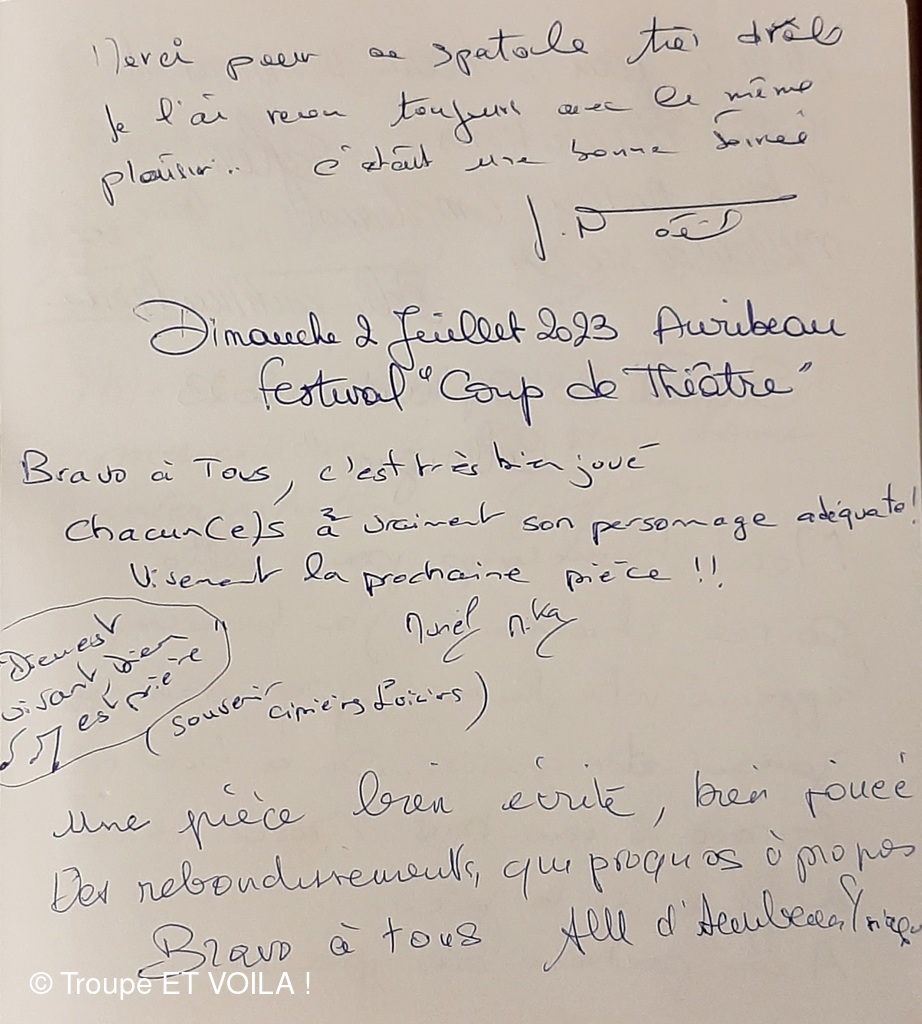 Merci pour ce spectacle très drôle
Je l'ai revu toujours avec le même
plaisir.. c'était une bonne soirée
J.N
Dimanche 2 Juillet 2023 Auribeau
festival "Coup de Théâtre"
Bravo à Tous, c'est très bien joué
Chacun(e)s à vraiment son personnage adéquate!
Visement la prochaine pièce !!
(souvenir cipières Loisirs)
est prière
une pièce bien écrite, bien jouée
Des rebondissements, qui proquos à propos
Bravo à tous d'Auribeau
© Troupe ET VOILA !